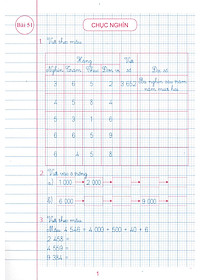 Bài 51
CHỤC NGHÌN
1. Viết theo mẫu
Hàng Viết số Đọc số
Nghìn Trăm Chục Đơn vị
3 6 5 2 3 652 Ba nghìn sáu trăm năm mươi hai
4 5 8 4
5 3 1 6
6 6 5 8
6 4 5 8
2. Viết vào ô trống
a) 1 000 → 2 000 → → →
b) 6 000 → → → 9 000 →
3. Viết theo mẫu
Mẫu: 4 546 = 4 000 + 500 + 40 + 6
2 458 =
4 559 =
9 384 =
1